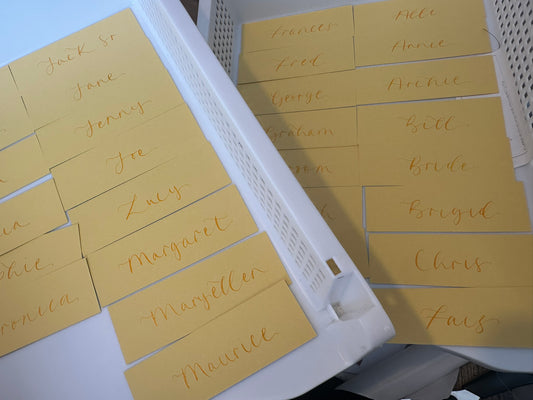 Jack Sr
Jane
Jenny
Joe
Lucy
Margaret
Maryellen
Maurice
Frances
Fred
George
Graham
Abbi
Annie
Archie
Bill
Bride
Brigid
Chris